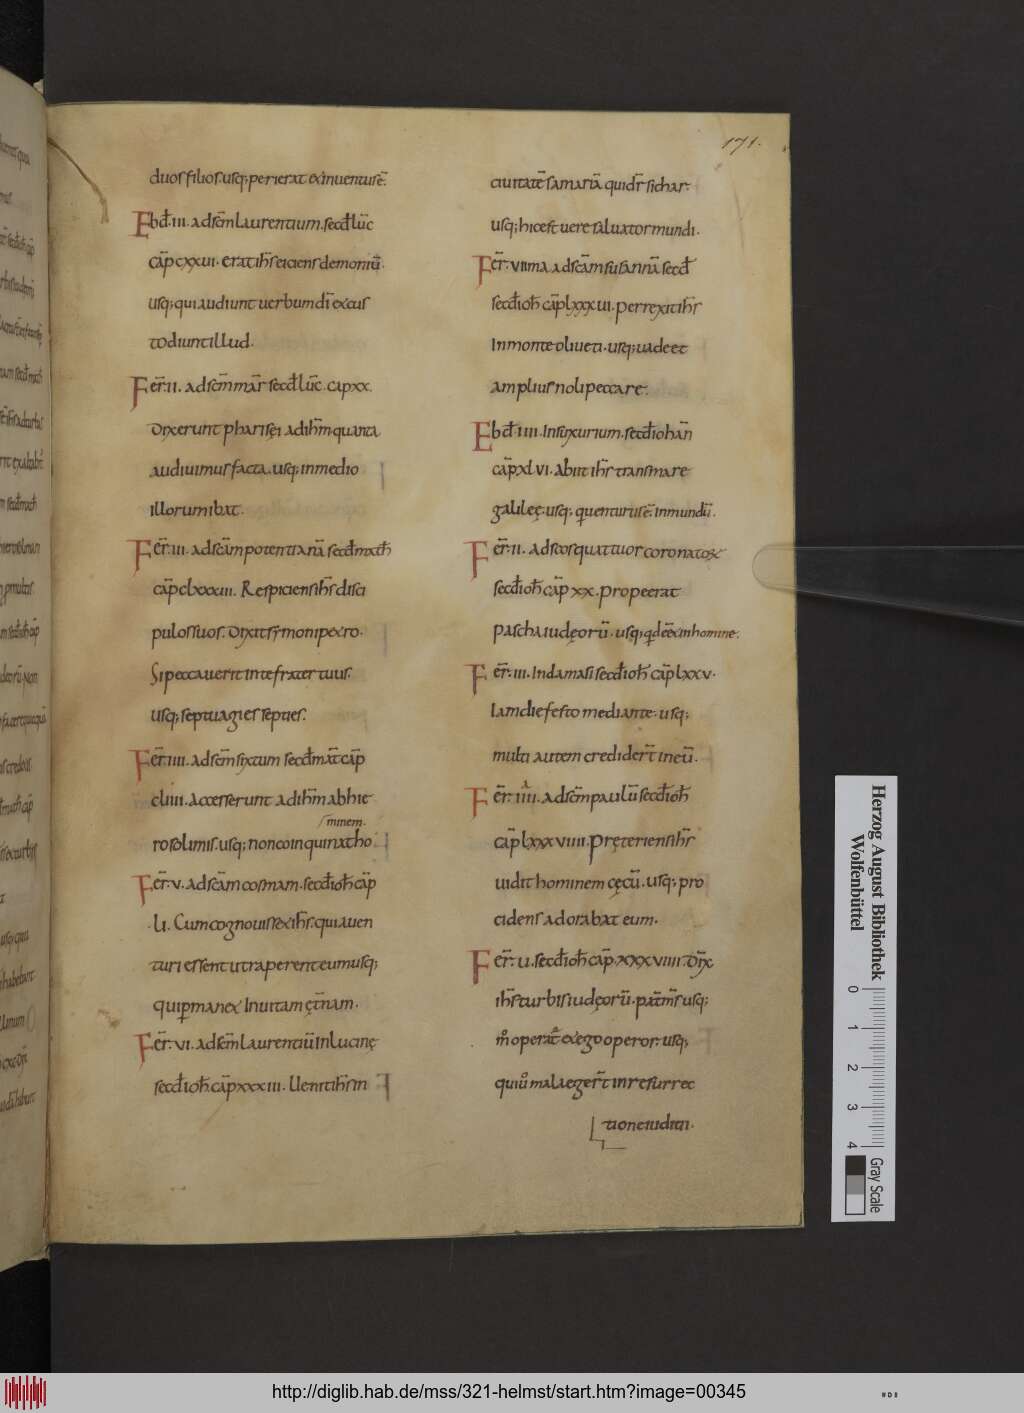 171.
duos filios. usq; perierat et inuentus ē.
Ebđ. III. ad scm̄ laurentium. secđ lūc
cap̄ cxxvi. erat ih̄s eiciens demoniū.
usq; qui audiunt uerbum dī et cus
todiunt illud.
Fer̄. II. ad scm̄ mar̄ secđ lūc. cap xx.
Dixerunt pharisęi ad ihm̄ quanta
audiuimus facta. usq; in medio
illorum ibat.
Fer̄. III. ad scām potentianā secđ math̄
cap̄ clxxxiii. Respiciens ih̄s disci
pulos suos. dixit symoni petro.
Si peccauerit in te frater tuus.
usq; septuagies septies.
Fer̄. IIII. ad scm̄ syxtum secđ mat̄ cap̄
cliiii. Accesserunt ad ihm̄ ab hie
minem.
rosolimis. usq; non coinquinat ho
Fer̄. V. ad scām cosmam. secđ ioh̄ cap̄
LI. Cum cognouisset ih̄s. quia uen
turi essent ut raperent eum usq;
qui pmanet In uitam ęt̄nam.
Fer̄. VI. ad scm̄ laurentiū In lucinę
secđ ioh̄. cap̄ xxxiii. Uenit ih̄s in
ciuitatē samariā quidr̄ sichar.
usq; hic est uere saluator mundi.
Fer̄. VIIma ad scām susannā secđ
secđ ioh̄ cap̄ lxxxvi. perrexit ih̄s
In monte oliueti. usq; uade et
amplius noli peccare.
Ebđ. IIII. In syxurium. secđ iohān
cap̄ xlvi. abiit ih̄s trans mare
galileę. usq; q uenturus ē. in mundū.
Fer̄. II. ad scōs quattuor coronatos
secđ ioh̄ cap̄ xx. prope erat
pascha iudęorū. usq; qd eēt in homine.
Fer̄. III. In damasi secđ ioh̄ cap̄ lxxv.
Iam die festo mediante. usq;
multi autem credidert̄ in eū.
Fer̄. IIII. ad scm̄ paulū secđ ioh̄
cap̄ lxxxviiii. pręteriens ih̄s
uidit hominem cęcū. usq; pro
cidens adorabat eum.
Fer̄. V. secđ ioh̄ cap̄. xxxviiii. dix̄
ih̄s turbis iudęorū. pat̄ m̄s usq;
m̊ operat̄ et ego operor. usq;
qui ů mala egert̄ in resurrec
tione iudicii.
Herzog August Bibliothek
Wolfenbüttel
0 1 2 3 4
Gray Scale
http://diglib.hab.de/mss/321-helmst/start.htm?image=00345